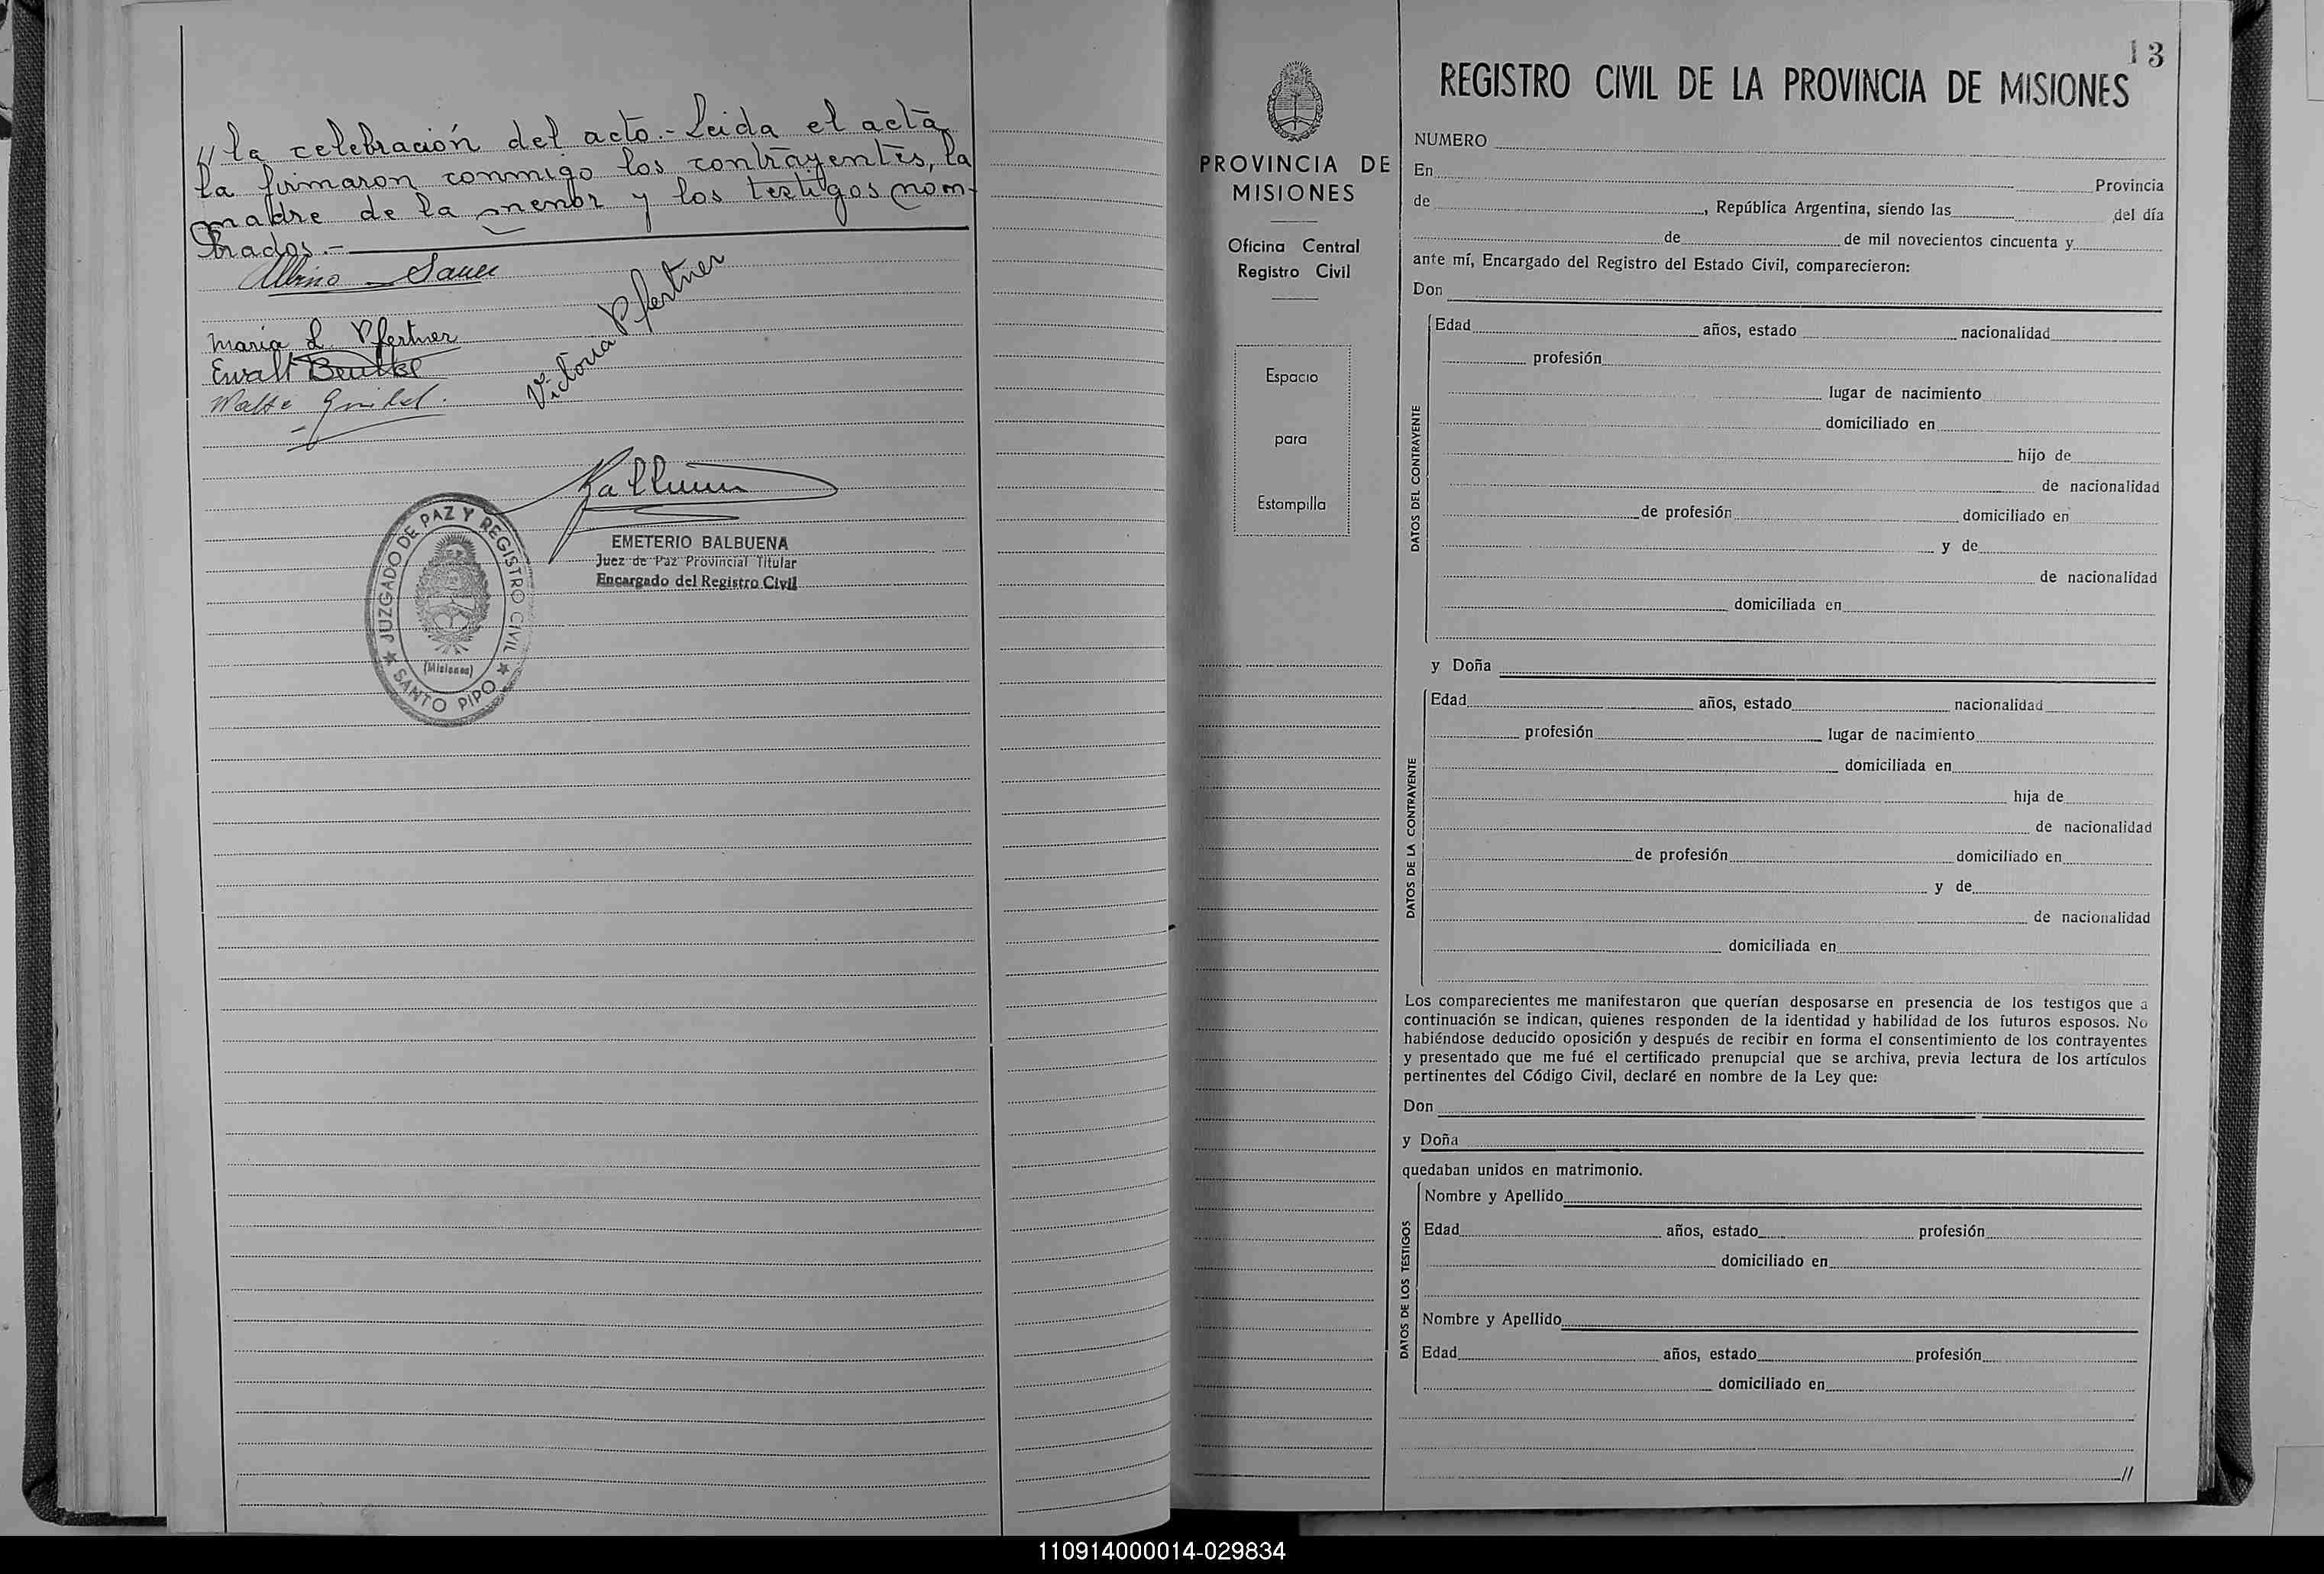 // la celebración del acto.- Leida el acta
la firmaron conmigo los contrayentes, la
madre de la menor y los testigos nom-
brados.-
Albino Sauer
Maria L. Pfertner
Victoria Pfertner
Ewalt
EMETERIO BALBUENA
Juez de Paz Provincial Titular
Encargado del Registro Civil
JUZGADO DE PAZ Y REGISTRO CIVIL
(Misiones)
★ SANTO PIPO ★
PROVINCIA DE
MISIONES
Oficina Central
Registro Civil
Espacio
para
Estampilla
13
REGISTRO CIVIL DE LA PROVINCIA DE MISIONES
NUMERO
En Provincia
de , República Argentina, siendo las del día
de de mil novecientos cincuenta y
ante mí, Encargado del Registro del Estado Civil, comparecieron:
Don
DATOS DEL CONTRAYENTE
Edad años, estado nacionalidad
profesión
lugar de nacimiento
domiciliado en
hijo de
de nacionalidad
de profesión domiciliado en
y de
de nacionalidad
domiciliada en
y Doña
DATOS DE LA CONTRAYENTE
Edad años, estado nacionalidad
profesión lugar de nacimiento
domiciliada en
hija de
de nacionalidad
de profesión domiciliado en
y de
de nacionalidad
domiciliada en
Los comparecientes me manifestaron que querían desposarse en presencia de los testigos que a
continuación se indican, quienes responden de la identidad y habilidad de los futuros esposos. No
habiéndose deducido oposición y después de recibir en forma el consentimiento de los contrayentes
y presentado que me fué el certificado prenupcial que se archiva, previa lectura de los artículos
pertinentes del Código Civil, declaré en nombre de la Ley que:
Don
y Doña
quedaban unidos en matrimonio.
DATOS DE LOS TESTIGOS
Nombre y Apellido
Edad años, estado profesión
domiciliado en
Nombre y Apellido
Edad años, estado profesión
domiciliado en
//
110914000014-029834